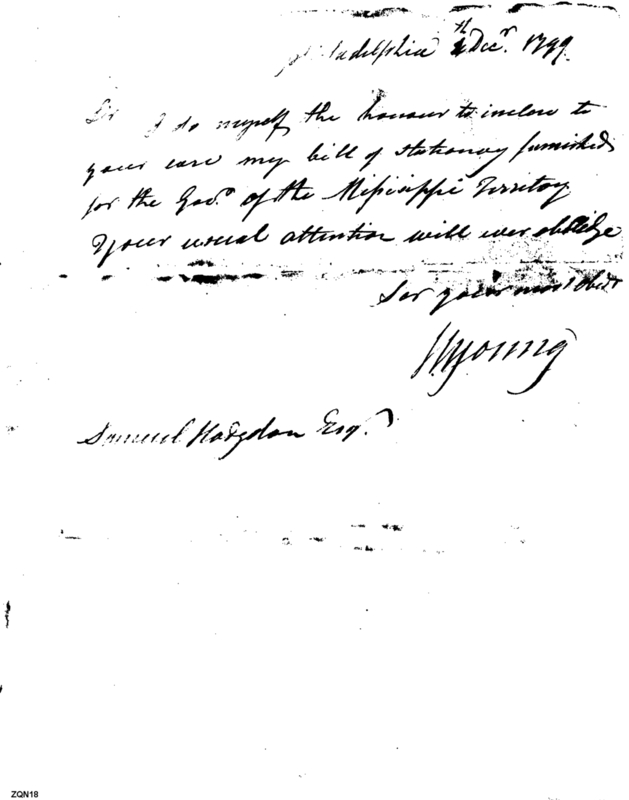 Philadelphia 4th Decr. 1799
Sir I do myself the honour to inclose to
your care my bill of stationary furnished
for the Govr. of the Missisippi Territory
Your usual attention will ever oblidge
Sir your most Obdt
Wyoung
Samuel Hodgdon Esqr.
ZQN18